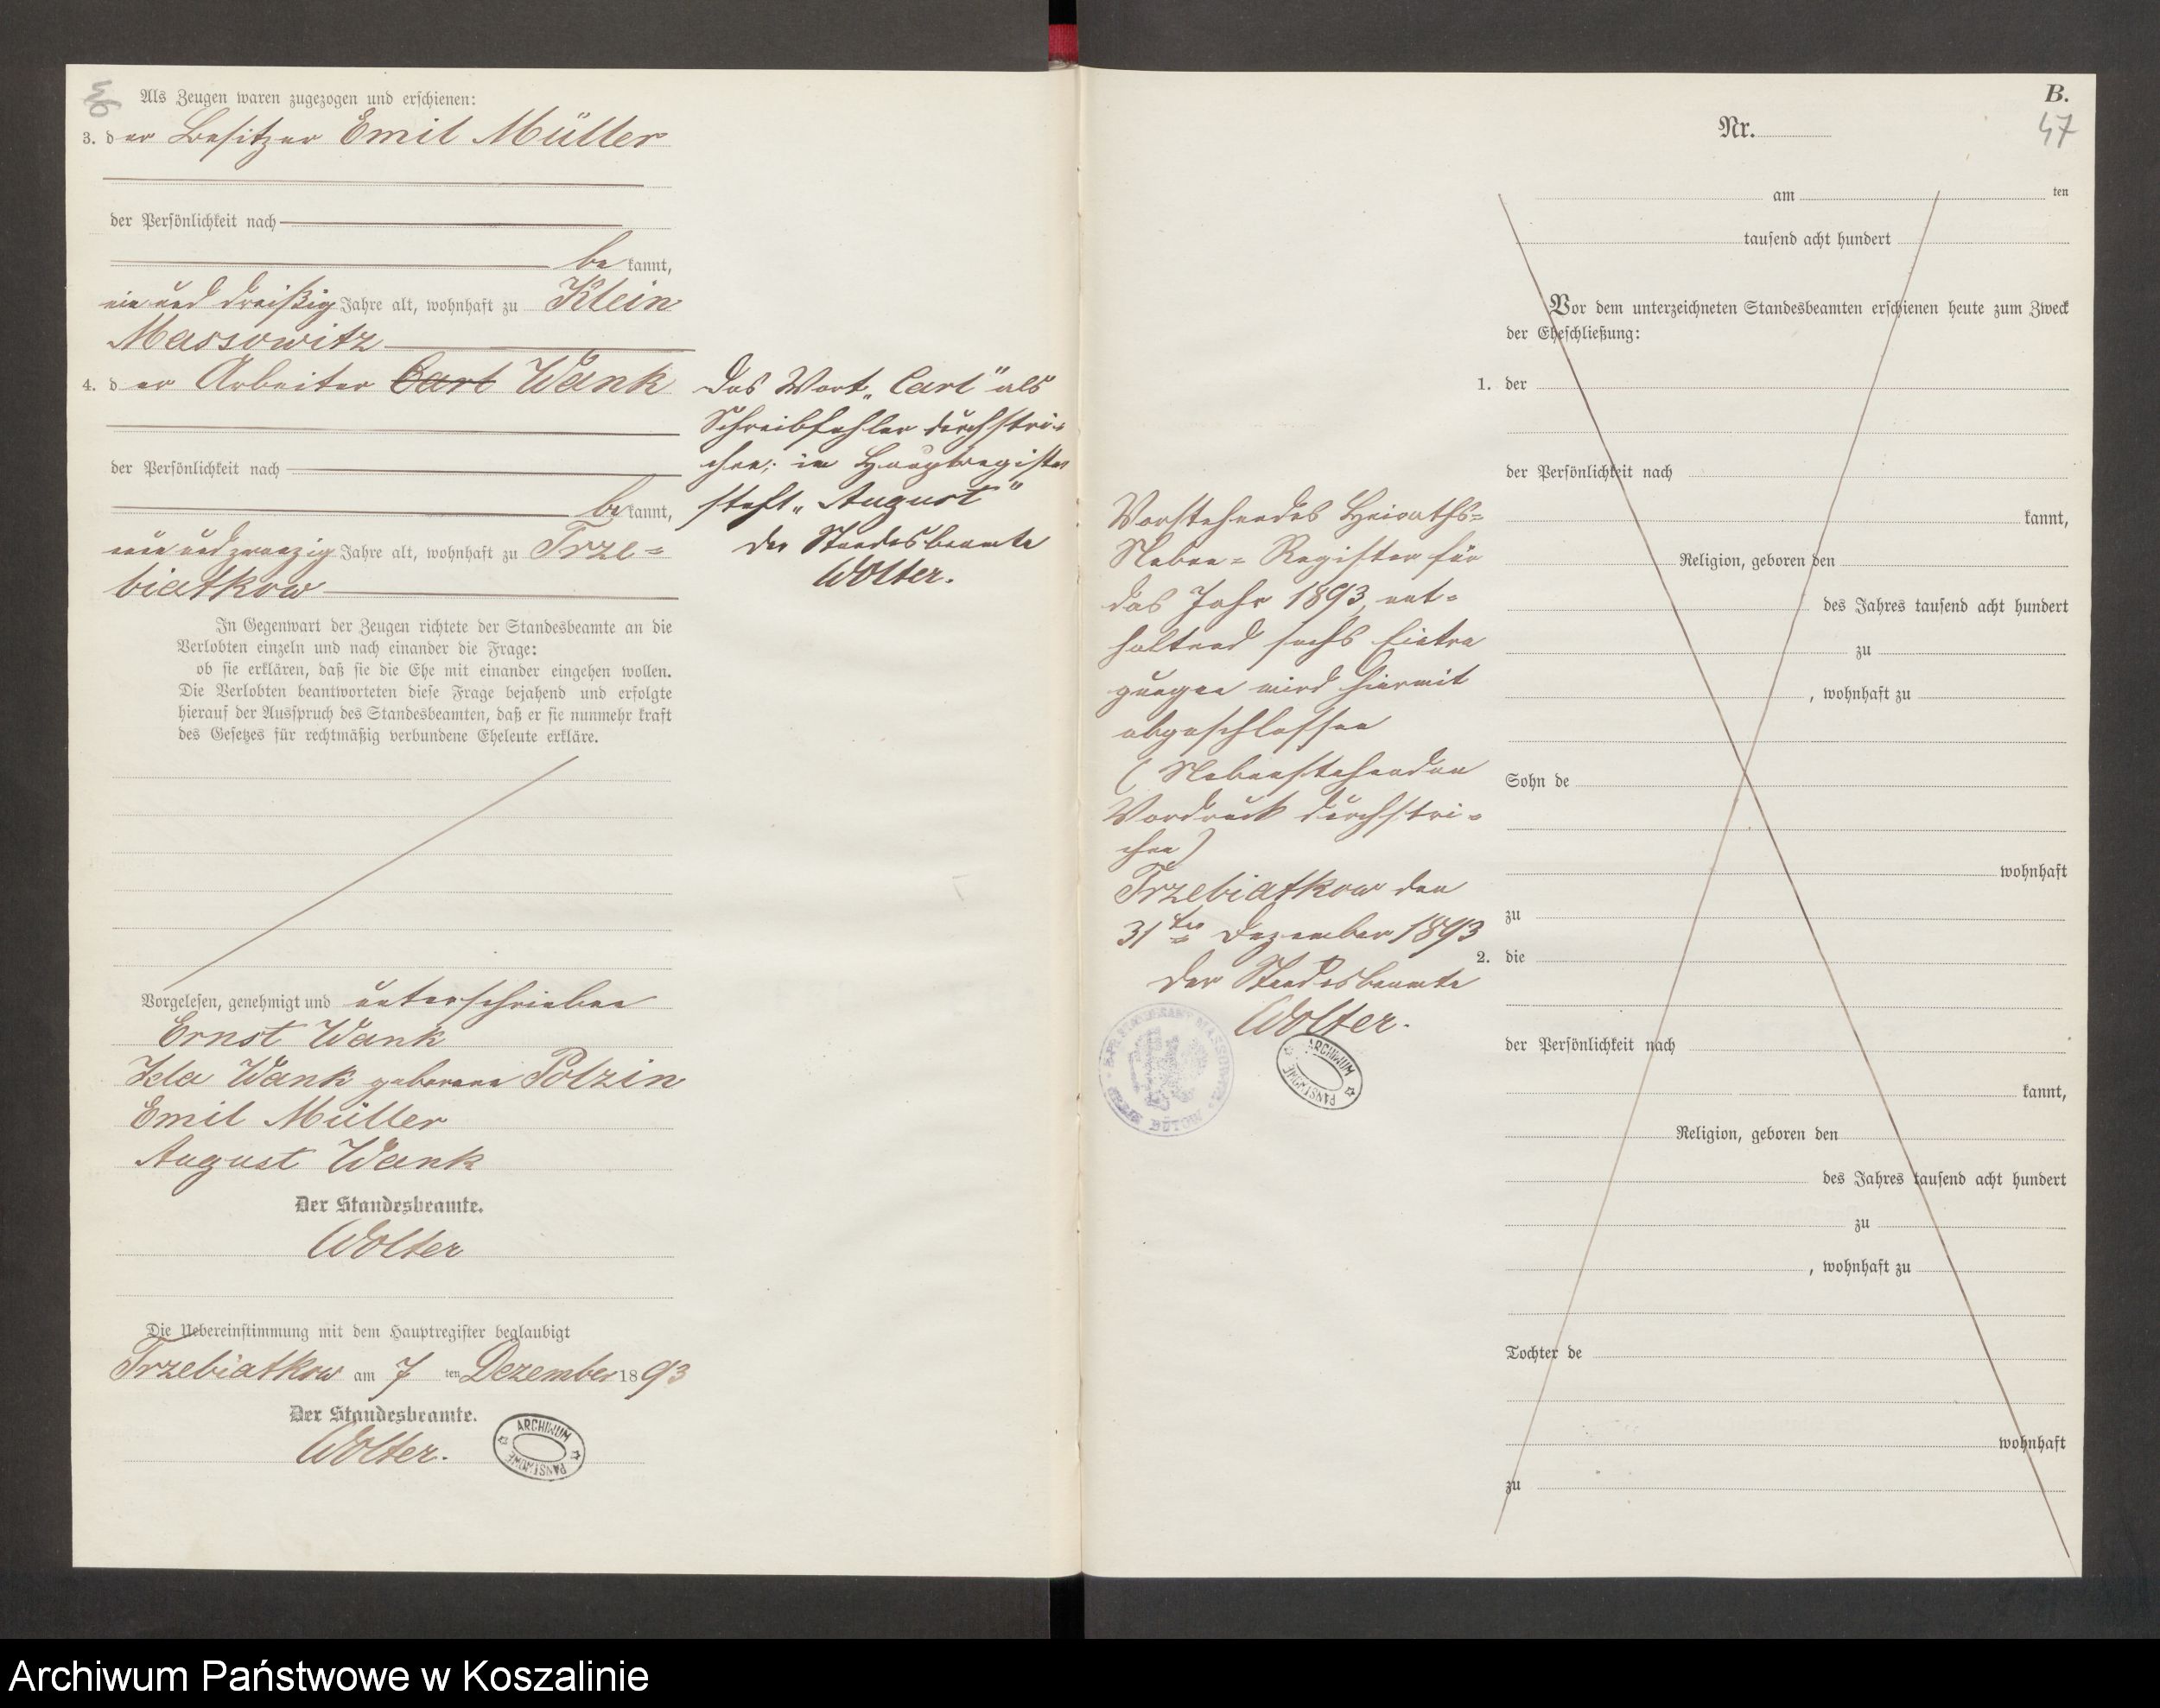 46
Als Zeugen waren zugezogen und erschienen:
3. der Besitzer Emil Müller
der Persönlichkeit nach
be kannt,
ein und dreißig Jahre alt, wohnhaft zu Klein
Massowitz
4. der Arbeiter Carl Wank
der Persönlichkeit nach
be kannt,
und zwanzig Jahre alt, wohnhaft zu Trze=
biatkow
Das Wort „Carl" als
Schreibfehler durchstri=
chen; im Hauptregister
steht „August"
Der Standesbeamte
Wolter.
In Gegenwart der Zeugen richtete der Standesbeamte an die
Verlobten einzeln und nach einander die Frage:
ob sie erklären, daß sie die Ehe mit einander eingehen wollen.
Die Verlobten beantworteten diese Frage bejahend und erfolgte
hierauf der Ausspruch des Standesbeamten, daß er sie nunmehr kraft
des Gesetzes für rechtmäßig verbundene Eheleute erkläre.
Vorgelesen, genehmigt und unterschrieben
Ernst Wank
Ida Wank geborene Polzin
Emil Müller
August Wank
Der Standesbeamte.
Wolter
Die Uebereinstimmung mit dem Hauptregister beglaubigt
Trzebiatkow am 7 ten Dezember 1893
Der Standesbeamte.
Wolter.
ARCHIWUM
PAŃSTWOWE
B.
47
Nr.
am ten
tausend acht hundert
Vor dem unterzeichneten Standesbeamten erschienen heute zum Zweck
der Eheschließung:
1. der
der Persönlichkeit nach
kannt,
Religion, geboren den
des Jahres tausend acht hundert
zu
, wohnhaft zu
Sohn de
wohnhaft
zu
2. die
der Persönlichkeit nach
kannt,
Religion, geboren den
des Jahres tausend acht hundert
zu
, wohnhaft zu
Tochter de
wohnhaft
zu
Vorstehendes Heiraths=
Neben=Register für
das Jahr 1893, ent=
haltend sechs Eintra
gungen wird hiermit
abgeschlossen
(Nebenstehenden
Vordruck durchstri=
chen)
Trzebiatkow den
31ten Dezember 1893
Der Standesbeamte
Wolter.
BÜTOW
ARCHIWUM
PAŃSTWOWE
Archiwum Państwowe w Koszalinie